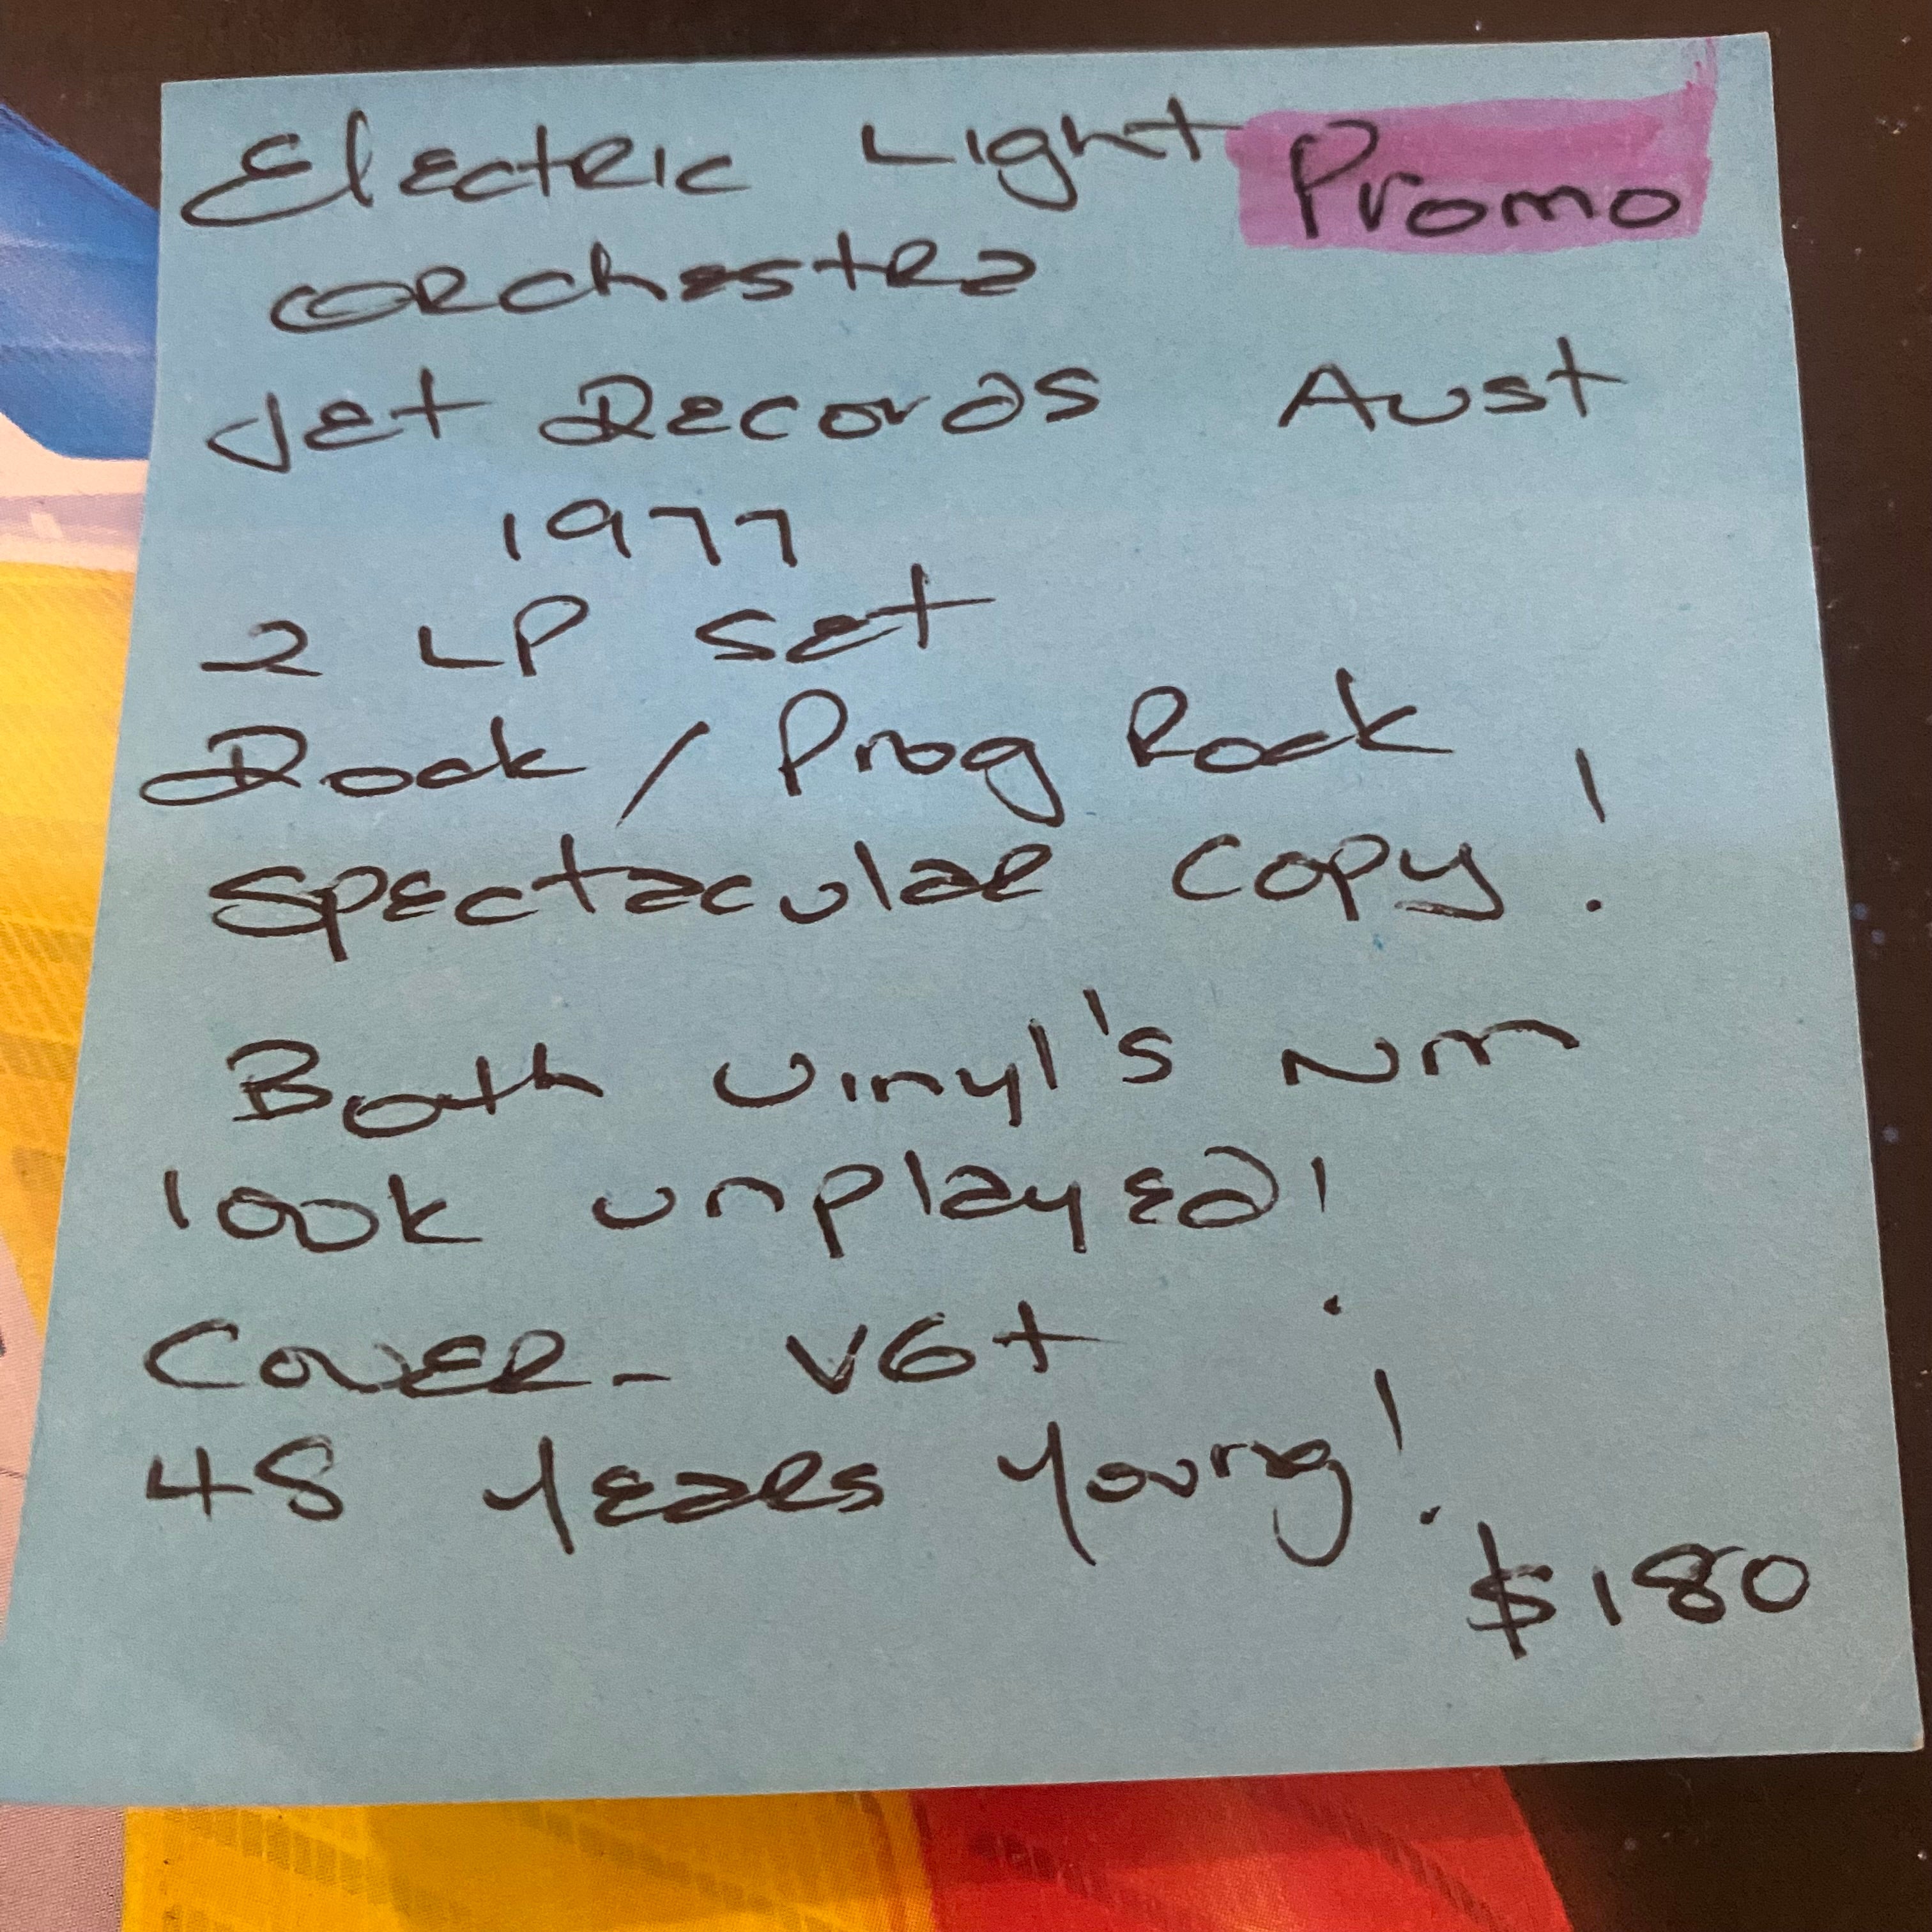 Electric Light Promo
Orchestra
Jet Records Aust
1977
2 LP set
Rock / Prog Rock
Spectacular Copy!
Both Vinyl's NM
look unplayed!
Cover - VG+
48 Years Young!
$180